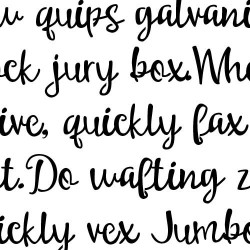 w quips galvani
ck jury box.Wha
ive, quickly fax
t.Do wafting z
ickly vex Jumbo